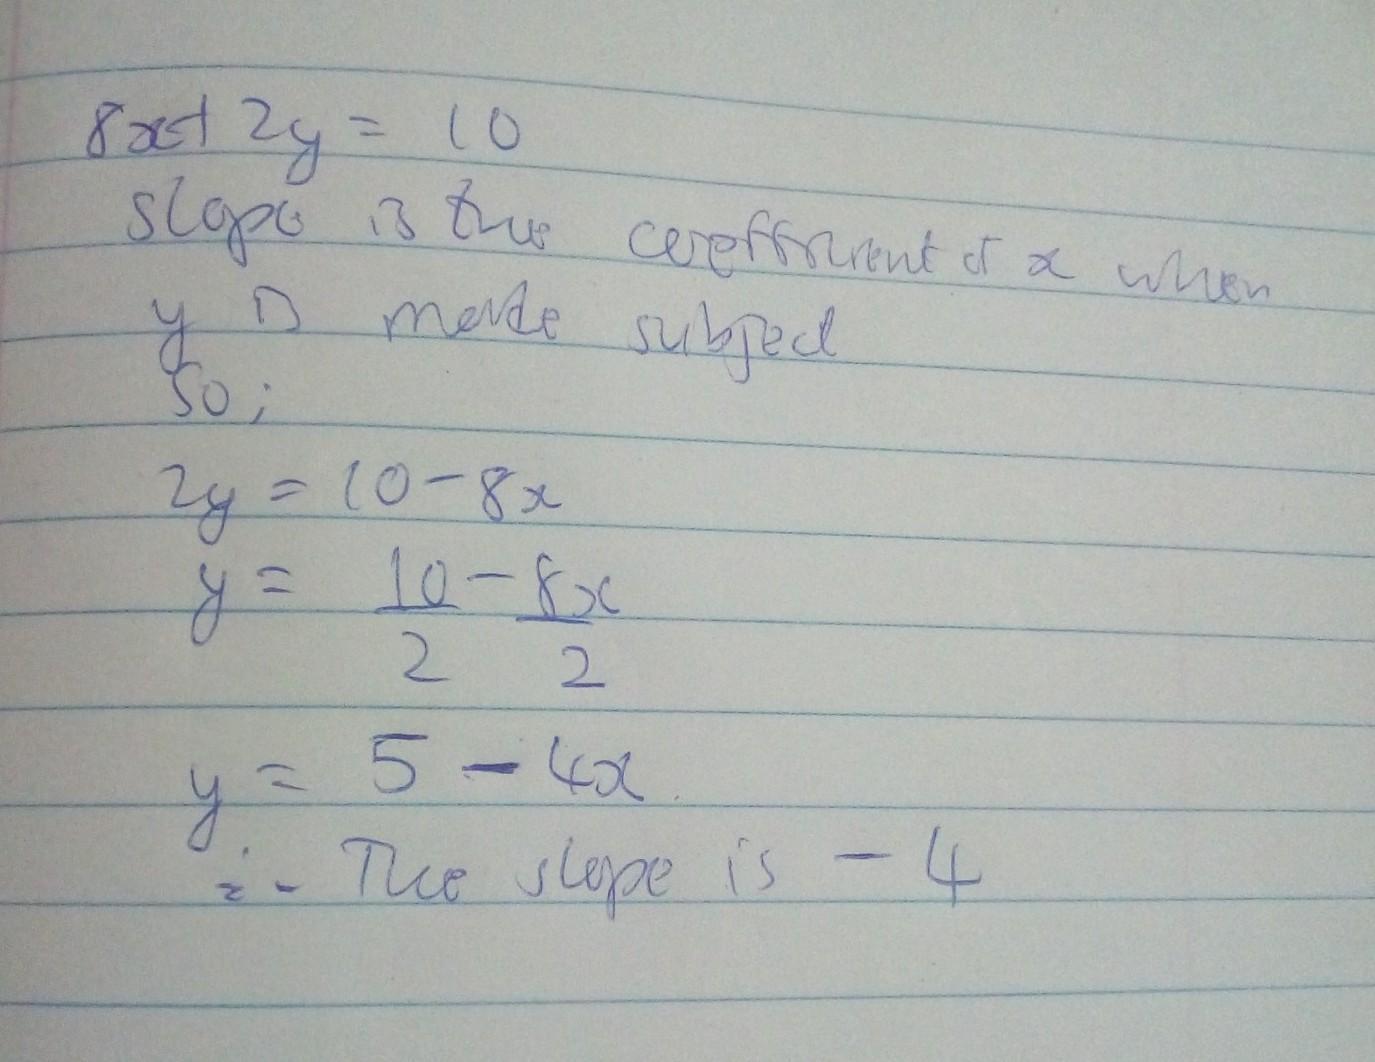 8x + 2y = 10
slope is the coefficient of x when
y is made subject
so;
2y = 10 - 8x
y = 10/2 - 8x/2
y = 5 - 4x
∴ The slope is - 4